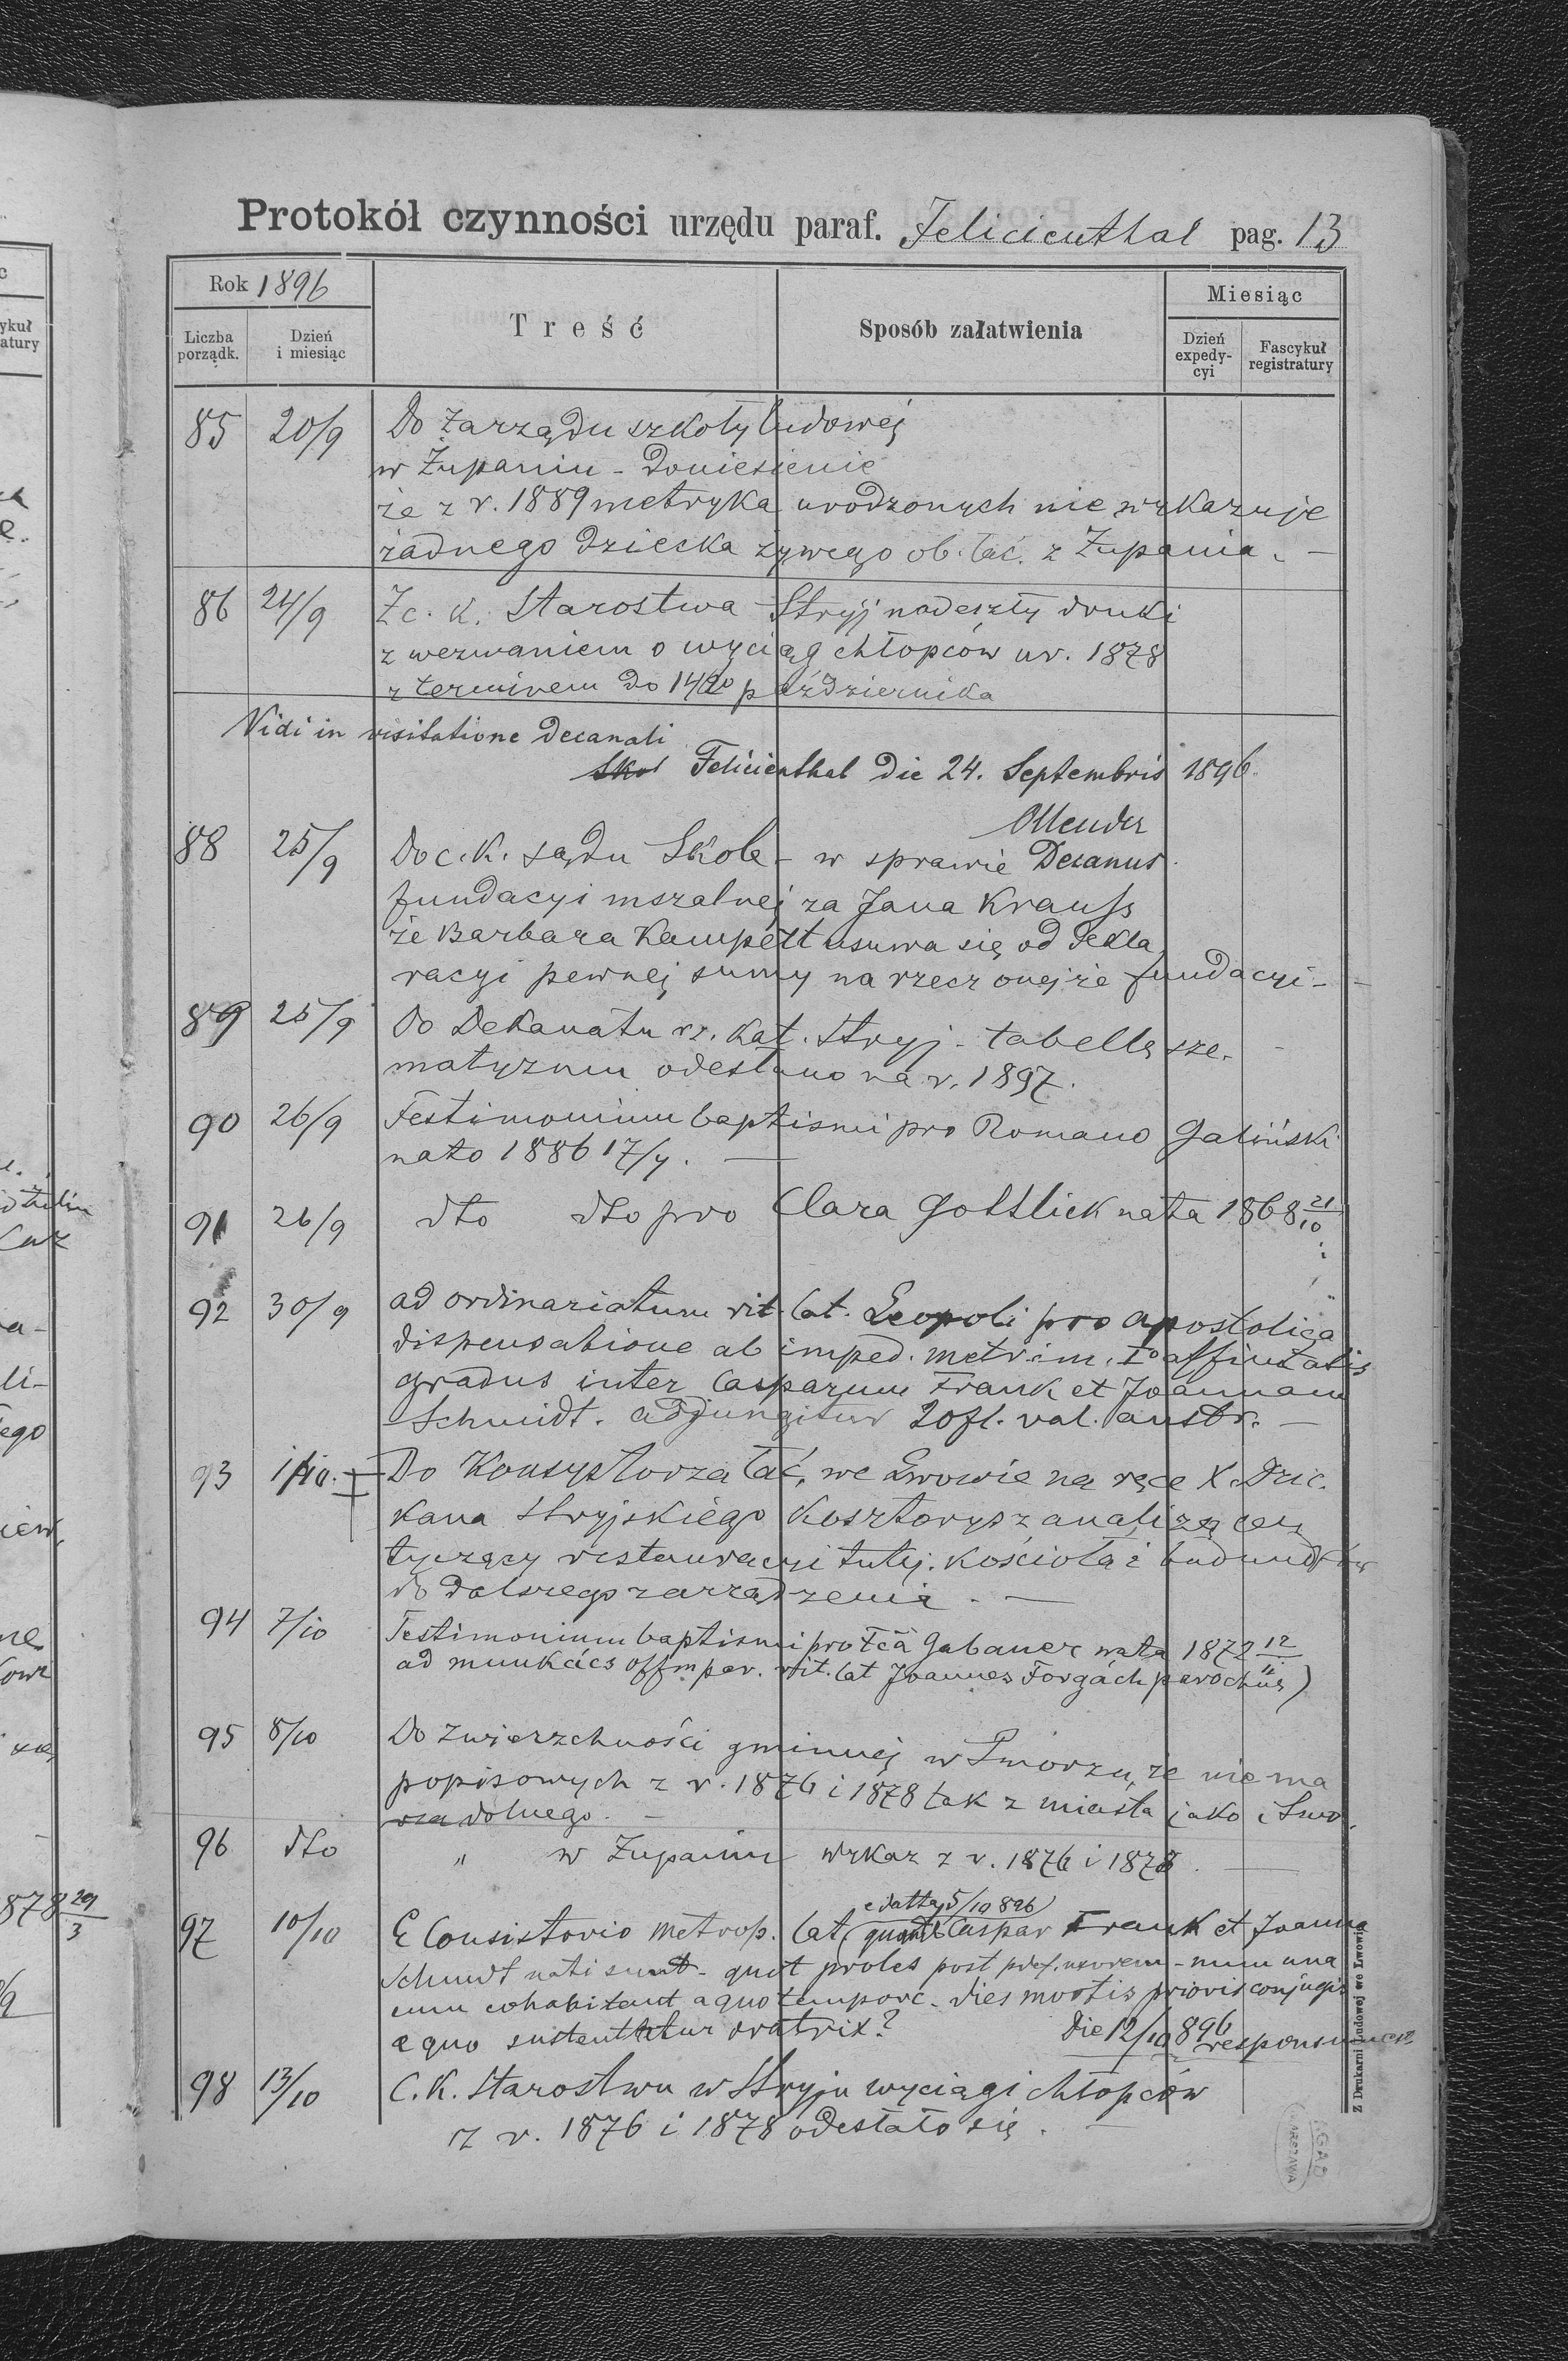 Protokół czynności urzędu paraf. Felicienthal pag. 13
Rok 1896
Liczba porządk.
Dzień i miesiąc
Treść
Sposób załatwienia
Miesiąc
Dzień expedy-cyi
Fascykuł registratury
85 20/9 Do Zarządu szkoły ludowej
w Żupaniu - doniesienie
że z r. 1889 metryka urodzonych nie wykazuje
żadnego dziecka żywego ob. łać. z Żupania. -
86 24/9 Z c. k. Starostwa Stryj nadeszły druki
z wezwaniem o wyciąg chłopców ur. 1878
z terminem do października
Vidi in visitatione decanali
Felicienthal die 24. Septembris 1896.
88 25/9 Do c. k. sądu Skole - w sprawie Decanus
fundacyi mszalnej za Jana Krauss
że Barbara Kampelt usuwa się od dekla
racyi pewnej sumy na rzecz onejże fundacyi -
89 25/9 Do Dekanatu rz. kat. Stryj - tabellę sze-
matyzmu odesłano na r. 1897.
90 26/9 Testimonium baptismi pro Romano Galiński
nato 1886 17/7. -
91 26/9 dto dto pro Clara Gottlick nata 1868 21/10
92 30/9 ad ordinariatum rit. lat. Leopoli pro apostolica
dispensatione ab imped. matrim. I° affinitatis
gradus inter Casparum Frank et Joannam
Schmidt. adjungitur 20 fl. val. austr. -
93 1/10. Do Konsystorza łać. we Lwowie na ręce X. Dzie
kana Stryjskiego kosztorys z analizą cen
tyczący restauracyi tutej. kościoła i budynków
do dalszego zarządzenia. -
94 7/10 Testimonium baptismi pro Gabauer nata 1872 12/11
ad munkács offm par. rit. lat Joannes Forgách parochus)
95 8/10 Do zwierzchności gminnej w Smorzu, że nie ma
popisowych z r. 1876 i 1878 tak z miasta jako i Smo.
rza dolnego. -
96 dto " w Żupaniu wykaz z r. 1876 i 1878. -
e datto 5/10 896
97 10/10 E Consistorio metrop. lat Caspar Frank et Joanna
Schmidt nati sunt - quot proles post uxorem - num una
cum cohabitant a quo tempore. dies mortis prioris conjugis
a quo sustentatur oratrix? die 12/10 896
98 13/10 C. K. Starostwu w Stryju wyciągi chłopców
z r. 1876 i 1878 odesłało się. -
Z Drukarni Ludowej we Lwowie
AGAD
WARSZAWA